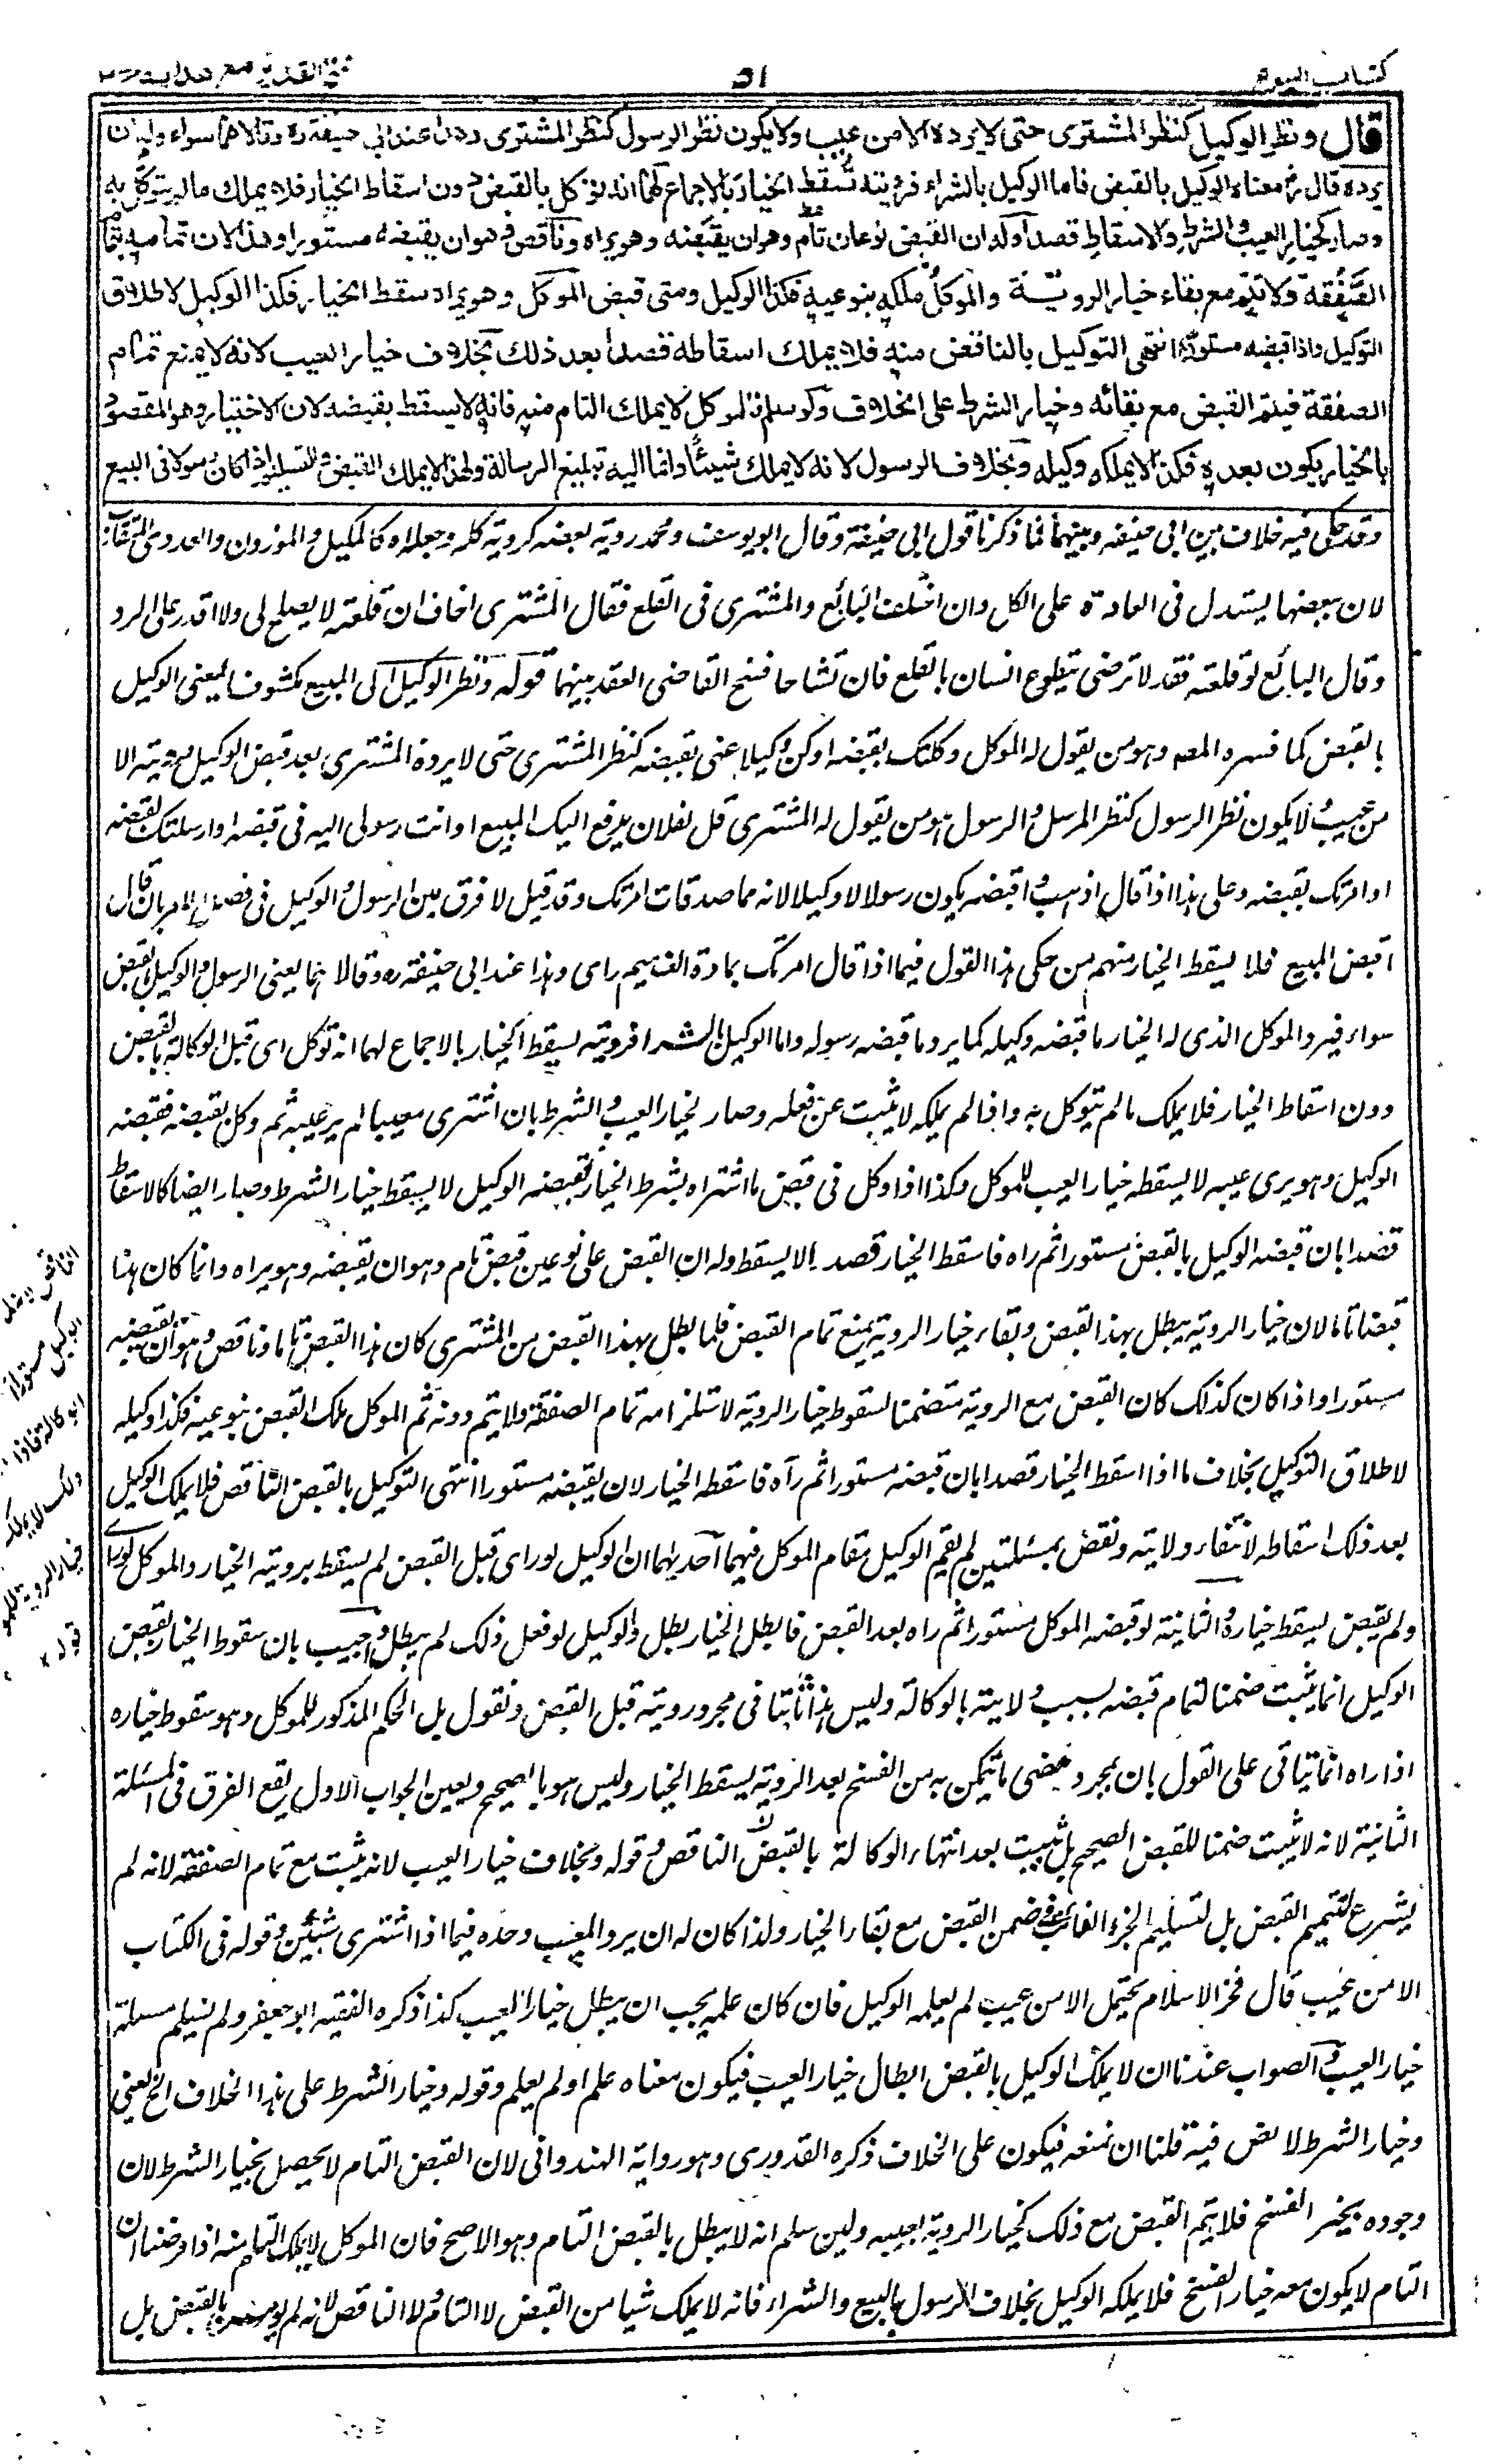 كتاب البيوع
٥١
فتح القدير مع هداية ج٣
قال ونظر الوكيل كنظر المشترى حتى لا يرده الا من عيب ولا يكون نظر الرسول كنظر المشترى وهذا عند ابي حنيفة ره وقالا هما سواء وله ان
يرده قال رض معناه الوكيل بالقبض فاما الوكيل بالشراء فرؤيته تسقط الخيار بالاجماع لهما انه توكل بالقبض دون اسقاط الخيار فلا يملك ما لم يتوكل به
وصار كخيار العيب والشرط والاسقاط قصدا وله ان القبض نوعان تام وهو ان يقبضه وهو يراه وناقص وهو ان يقبضه مستورا وهذا لان تمامه بتمام
الصفقة ولا تتم مع بقاء خيار الروية والموكل ملكه بنوعيه فكذا الوكيل ومتى قبض الموكل وهو يراه سقط الخيار فكذا الوكيل لاطلاق
التوكيل واذا قبضه مستورا انتهى التوكيل بالناقص منه فلا يملك اسقاطه قصدا بعد ذلك بخلاف خيار العيب لانه لا يمنع تمام
الصفقة فيتم القبض مع بقائه وخيار الشرط على الخلاف ولو سلم فالموكل لا يملك التام منه فانه لا يسقط بقبضه لان الاختيار وهو المقصود
بالخيار يكون بعده فكذا لا يملكه وكيله وبخلاف الرسول لانه لا يملك شيئا وانما اليه تبليغ الرسالة ولهذا لا يملك القبض والتسليم اذا كان رسولا فى البيع
وقد حكى فيه خلاف بين ابى حنيفه وبينهما فما ذكرنا قول ابى حنيفة وقال ابو يوسف ومحمد روية بعضه كروية كله وجعلاه كالمكيل والموزون والعددى المتقارب
لان ببعضها يستدل فى العادة على الكل وان اختلف البائع والمشترى فى القلع فقال المشترى اخاف ان قلعته لا يصلح لى ولا اقدر على الرد
وقال البائع لو قلعته فقد لا ترضى يتطوع انسان بالقلع فان تشاحا فسخ القاضى العقد بينهما قوله ونظر الوكيل اى الى المبيع مكشوفا يعنى الوكيل
بالقبض كما فسره المصه وهو من يقول له الموكل وكلتك بقبضه او كن وكيلا عنى بقبضه كنظر المشترى حتى لا يرده المشترى بعد قبض الوكيل ورويته الا
من عيب ولا يكون نظر الرسول كنظر المرسل والرسول هو من يقول له المشترى قل لفلان يدفع اليك المبيع او انت رسولى اليه فى قبضه او ارسلتك لقبضه
او امرتك بقبضه وعلى هذا اذا قال اذهب واقبضه يكون رسولا لا وكيلا لانه مما صدقات امرتك وقد قيل لا فرق بين الرسول والوكيل فى فصل الامر بان قال
اقبض المبيع فلا يسقط الخيار منهم من حكى هذا القول فيما اذا قال امرتك بمادة الف ميم راى وهذا عند ابى حنيفة ره وقالا هما يعنى الرسول والوكيل بالقبض
سواء فيرد الموكل الذى له الخيار ما قبضه وكيله كما يرد ما قبضه رسوله واما الوكيل بالشراء فرويته يسقط الخيار بالاجماع لهما انه توكل اى قبل الوكالة بالقبض
دون اسقاط الخيار فلا يملك ما لم يتوكل به واذا لم يملكه لا يثبت عن فعله وصار لخيار العيب والشرط بان اشترى معيبا لم ير عيبه ثم وكل بقبضه فقبضه
الوكيل وهو يرى عيبه لا يسقط خيار العيب للموكل وكذا اذا وكل فى قبض ما اشتراه بشرط الخيار فقبضه الوكيل لا يسقط خيار الشرط وصار ايضا كالاسقاط
قصدا بان قبضه الوكيل بالقبض مستورا ثم راه فاسقط الخيار قصدا لا يسقط وله ان القبض على نوعين قبض تام وهو ان يقبضه وهو يراه وانما كان هذا
قبضا تاما لان خيار الروية يبطل بهذا القبض وبقاء خيار الروية يمنع تمام القبض فلما بطل بهذا القبض من المشترى كان هذا القبض تاما وناقص وهو ان يقبضه
مستورا واذا كان كذلك كان القبض مع الروية متضمنا لسقوط خيار الروية لاستلزامه تمام الصفقة ولا يتم دونه ثم الموكل ملك القبض بنوعيه فكذا وكيله
لاطلاق التوكيل بخلاف ما اذا اسقط الخيار قصدا بان قبضه مستورا ثم رآه فاسقط الخيار لان بقبضه مستورا انتهى التوكيل بالقبض الناقص فلا يملك الوكيل
بعد ذلك اسقاطه لانتفاء ولايته ونقض بمسئلتين لم يقم الوكيل مقام الموكل فيهما احديهما ان الوكيل لو راى قبل القبض لم يسقط برويته الخيار والموكل لو راى
ولم يقبض يسقط خياره والثانية لو قبضه الموكل مستورا ثم راه بعد القبض فابطل الخيار بطل والوكيل لو فعل ذلك لم يبطل واجيب بان سقوط الخيار بقبض
الوكيل انما يثبت ضمنا لتمام قبضه بسبب ولايته بالوكالة وليس هذا ثابتا فى مجرد رويته قبل القبض ونقول بل الحكم المذكور للموكل وهو سقوط خياره
اذا راه انما يتاتى على القول بان مجرد مضى ما يتمكن به من الفسخ بعد الروية يسقط الخيار وليس هو بالصحيح وبعين الجواب الاول يقع الفرق فى المسئلة
الثانية لانه لا يثبت ضمنا للقبض الصحيح بل يثبت بعد انتهاء الوكالة بالقبض الناقص وقوله وبخلاف خيار العيب لانه يثبت مع تمام الصفقة لانه لم
يشرع لتتميم القبض بل لتسليم الجزء الفائت فى ضمن القبض مع بقاء الخيار ولذا كان له ان يرد المعيب وحده فيما اذا اشترى شيئين وقوله فى الكتاب
الا من عيب قال فخر الاسلام يحتمل الا من عيب لم يعلمه الوكيل فان كان علمه يجب ان يبطل خيار العيب كذا ذكره الفقيه ابو جعفر ولم يسلم مسئلة
خيار العيب والصواب عندنا ان لا يملك الوكيل بالقبض ابطال خيار العيب فيكون معناه علم او لم يعلم وقوله وخيار الشرط على هذا الخلاف الخ يعنى
وخيار الشرط لا نص فيه فلنا ان نمنعه فيكون على الخلاف ذكره القدورى وهو رواية الهندوانى لان القبض التام لا يحصل بخيار الشرط لان
وجوده يخير الفسخ فلا يتم القبض مع ذلك كخيار الروية اجيبه ولين سلم انه لا يبطل بالقبض التام وهو الاصح فان الموكل لا يملك التام منه اذا فرضنا ان
التام لا يكون معه خيار الفسخ فلا يملكه الوكيل بخلاف الرسول بالبيع والشراء فانه لا يملك شيا من القبض لا التام ولا الناقص لانه لم يومر بالقبض بل
الوكيل مستورا
الوكالة فاذا
ذلك لا يملك
خيار الروية
قوله